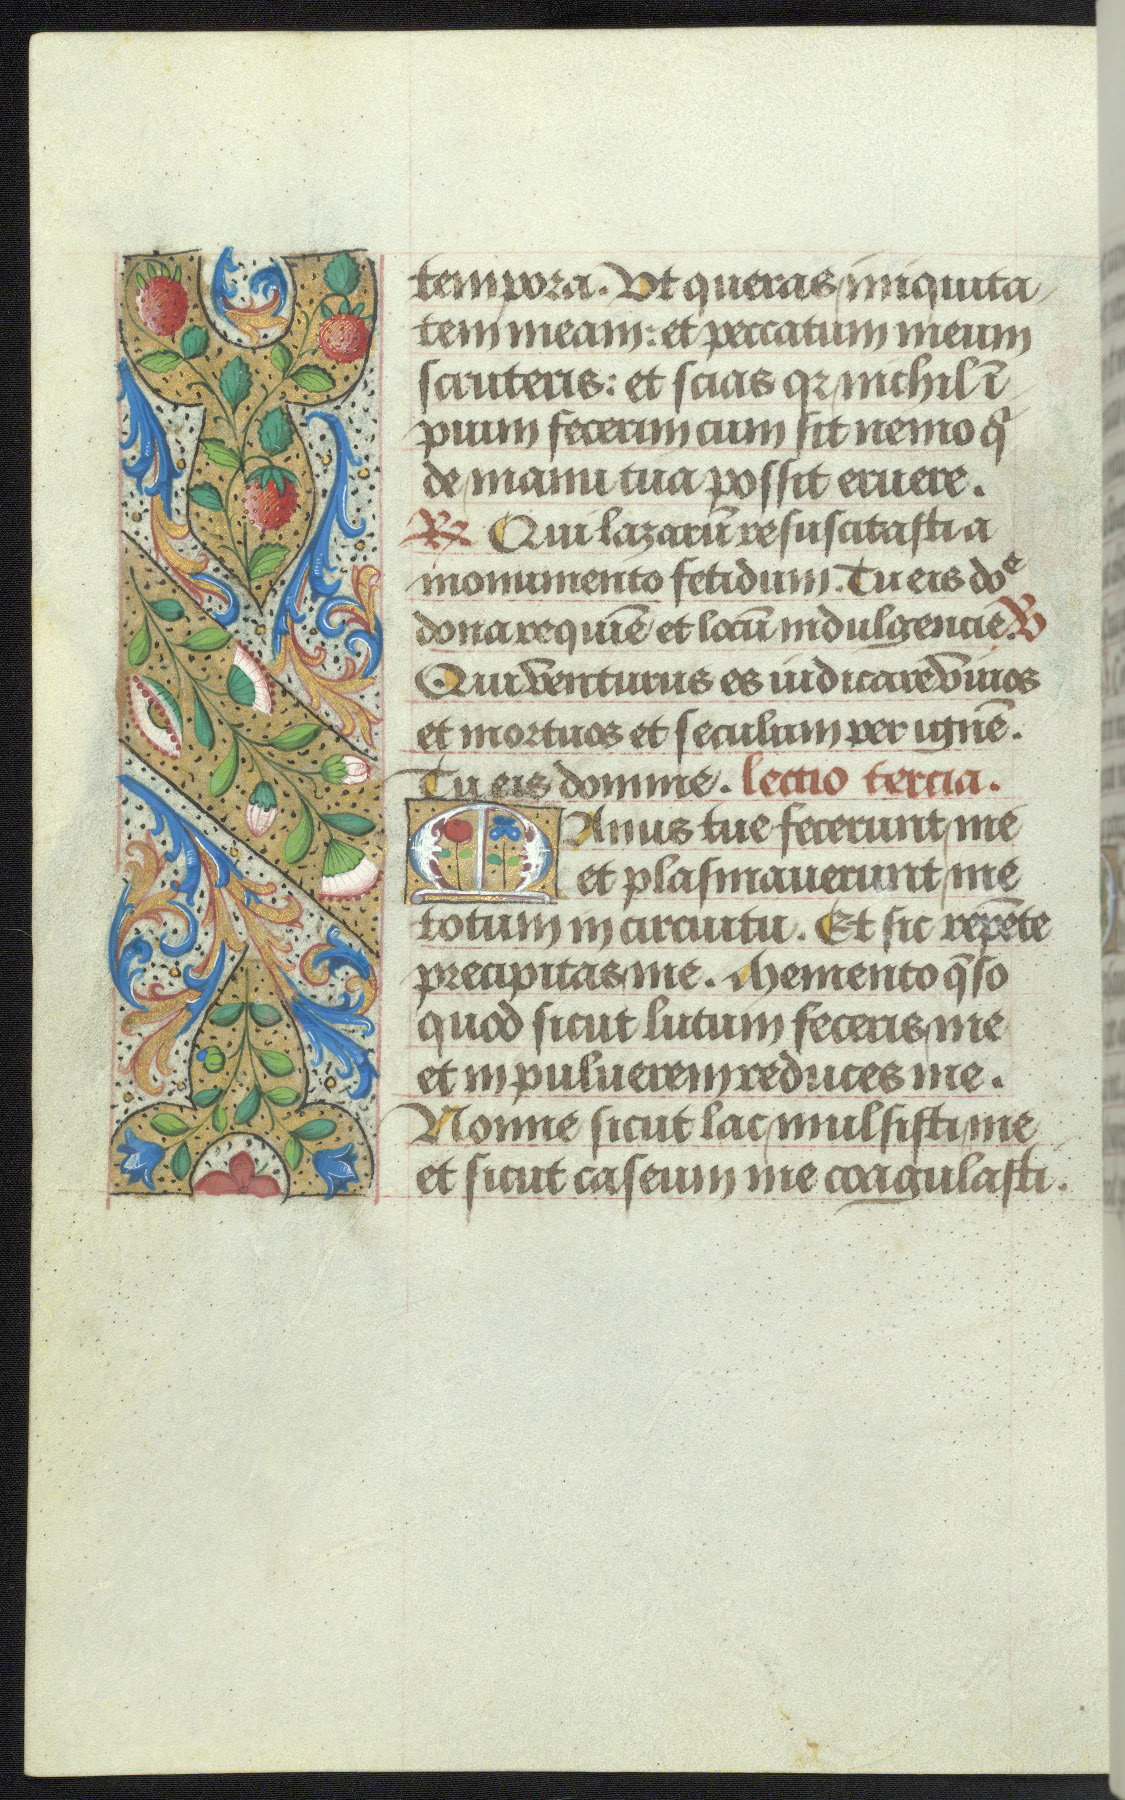 tempora. Ut queras iniquita
tem meam: et peccatum meum
scruteris: et scias qr nichil ī
pium fecerim cum sit nemo q̄
de manu tua possit eruere.
℞ Qui lazarū resuscitasti a
monumento fetidum. Tu eis doᵉ
dona requiē et locū indulgencie. ℣
Qui venturus es iudicare vivos
et mortuos et seculum per ignē.
Tu eis domine. lectio tercia.
MAnus tue fecerunt me
et plasmaverunt me
totum in circuitu. Et sic repēte
precipitas me. Memento q̄so
quod sicut lutum feceris me
et in pulverem reduces me.
Nonne sicut lac mulsisti me
et sicut caseum me coagulasti.